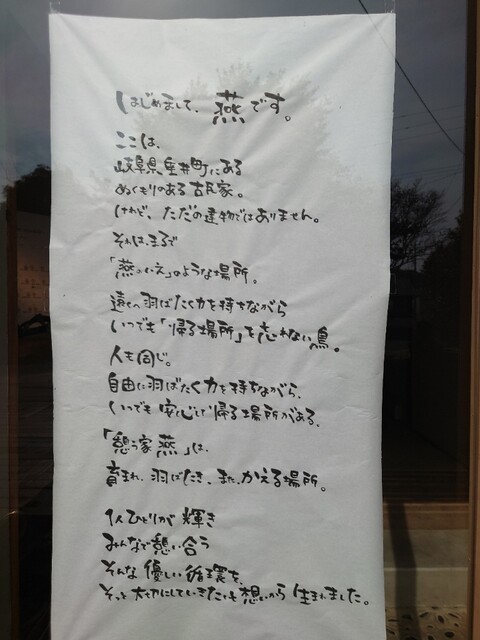 はじめまして、燕です。
ここは、
岐阜県垂井町にある
ぬくもりのある古民家。
けれど、ただの建物ではありません。
それは、まるで
「燕のいえ」のような場所。
遠くへ羽ばたく力を持ちながら
いつでも「帰る場所」を忘れない鳥。
人も同じ。
自由に羽ばたく力を持ちながら、
いつでも安心して帰る場所がある。
「憩う家 燕」は、
育まれ、羽ばたき、また、かえる場所。
1人ひとりが輝き
みんなで憩い合う
そんな優しい循環を、
そっと大切にしていきたい想いから生まれました。